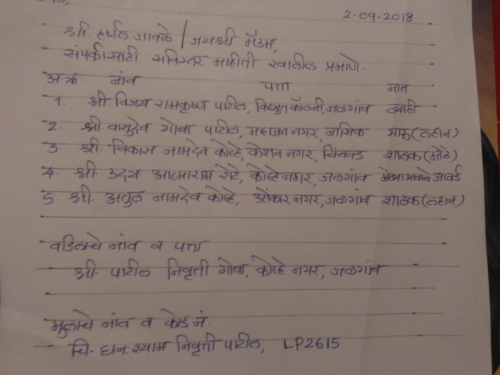 2-09-2018
श्री हर्षल जावळे / जयश्री मॅडम,
संपर्कासाठी सविस्तर माहीती खालील प्रमाणे.
अ.क्र नांव पत्ता नाते
1. श्री विजय रामकृष्ण पाटील, विद्युत कॉलनी, जळगांव व्याही
2. श्री. वासुदेव गोबा पाटील, महाजन नगर, नाशिक भाऊ (लहान)
3 श्री. विकास नामदेव कोल्हे केशव नगर, चिंचवड शालक (मोठे)
4 श्री उदय आत्माराम रोटे, कोल्हे नगर, जळगांव जावई
5. श्री. अतुल नामदेव कोल्हे, ओंकार नगर, जळगांव शालक (लहान)
वडिलांचे नांव व पत्ता
श्री. पाटील निवृत्ती गोबा, कोल्हे नगर, जळगांव
मुलाचे नांव व कोड नं.
चि. घनःश्याम निवृत्ती पाटील, LP2615